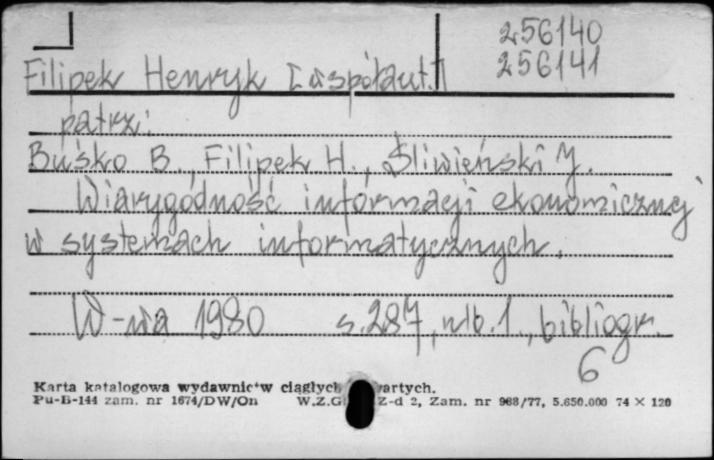 256140
256141
Filipek Henryk [współaut.]
patrz:
Buśko B., Filipek H., Śliwieński J.
Wiarygodność informacji ekonomicznej
w systemach informatycznych.
W-wa 1980 s. 287, nlb. 1., bibliogr.
6
Karta katalogowa wydawnictw ciągłych
Pu-B-144 zam. nr 1674/DW/On W.Z.G Z-d 2, Zam. nr 968/77, 5.650.000 74 × 120